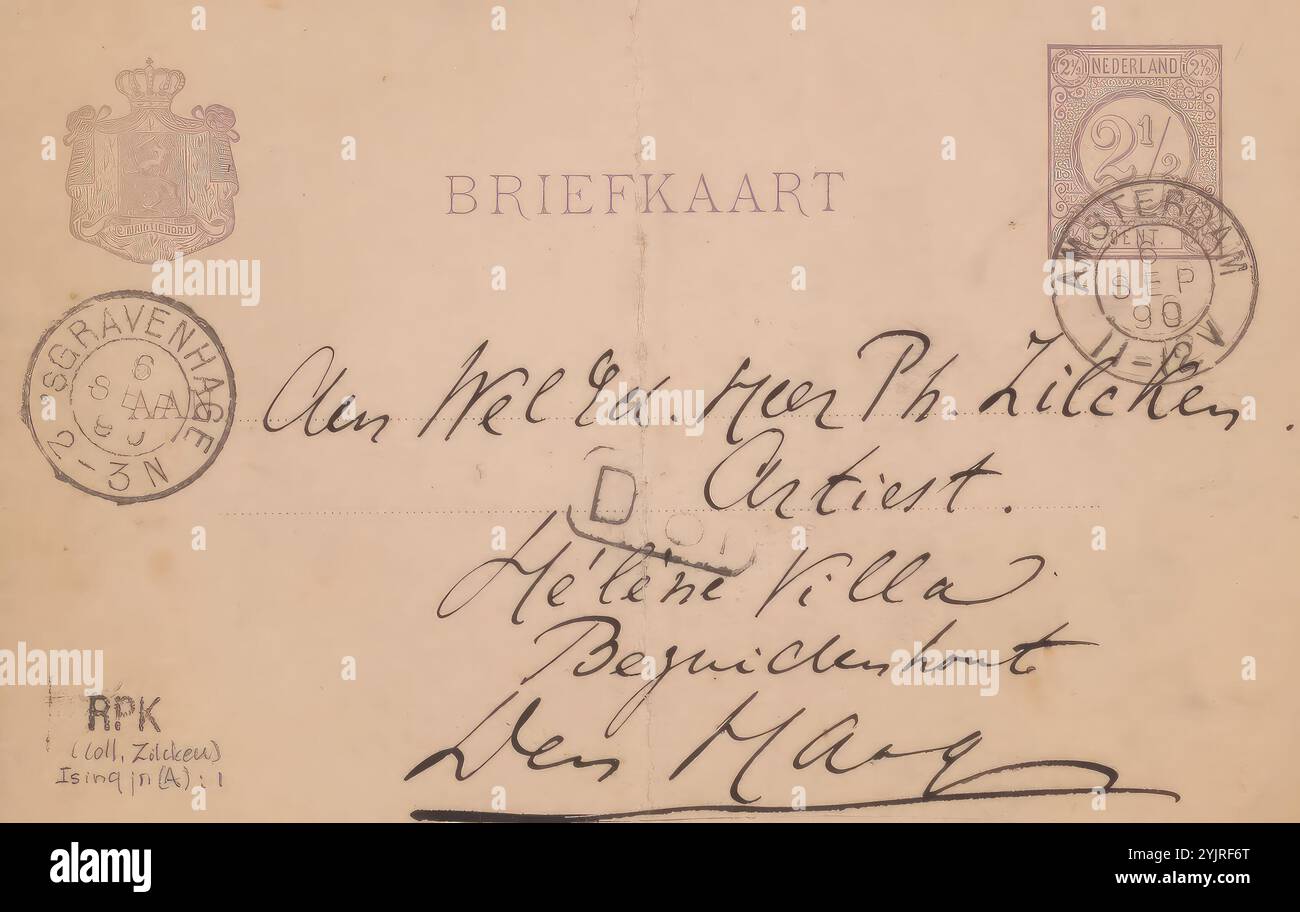 2½ NEDERLAND 2½
2½
CENT.
JE MAINTIENDRAI
BRIEFKAART
AMSTERDAM
6
SEP
90
11-12V
'SGRAVENHAGE
6
2-3N
Aan Wel Ed. Heer Ph. Zilcken.
Artiest.
D
Hélène Villa
Bezuidenhout
Den Haag
RPK
(Coll. Zilcken)
Ising jr (A): 1
alamy
Image ID: 2YJRF6T
www.alamy.com